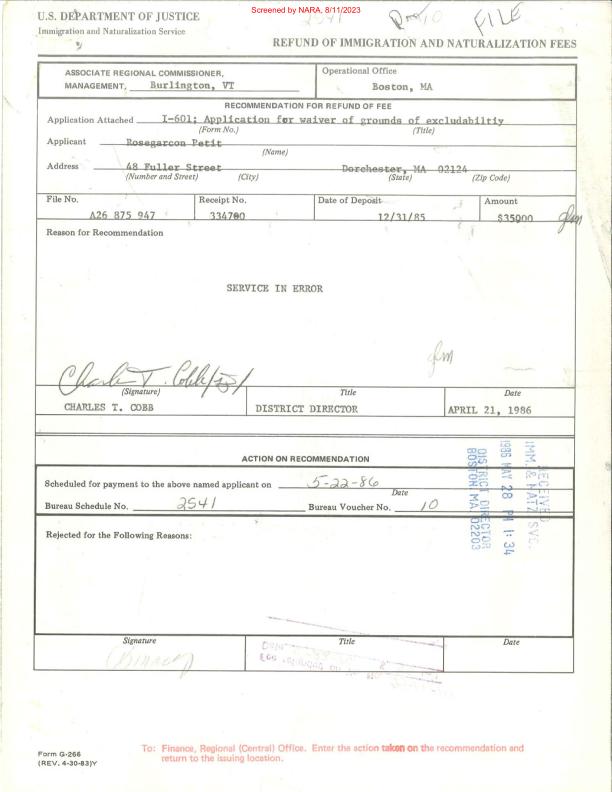 Screened by NARA, 8/11/2023
U.S. DEPARTMENT OF JUSTICE
Immigration and Naturalization Service
2541
10
FILE
REFUND OF IMMIGRATION AND NATURALIZATION FEES
ASSOCIATE REGIONAL COMMISSIONER,
MANAGEMENT, Burlington, VT
Operational Office
Boston, MA
RECOMMENDATION FOR REFUND OF FEE
Application Attached I-601; Application for waiver of grounds of excludabiltiy
(Form No.) (Title)
Applicant Rosegarcon Petit
(Name)
Address 48 Fuller Street Dorchester, MA 02124
(Number and Street) (City) (State) (Zip Code)
File No. Receipt No. Date of Deposit Amount
A26 875 947 334700 12/31/85 $35000
Reason for Recommendation
SERVICE IN ERROR
Charles T. Cobb
(Signature) Title Date
CHARLES T. COBB DISTRICT DIRECTOR APRIL 21, 1986
ACTION ON RECOMMENDATION
Scheduled for payment to the above named applicant on 5-22-86
Date
Bureau Schedule No. 2541 Bureau Voucher No. 10
RECEIVED
IMM. & NATZ SVC.
1986 MAY 28 PM 1:34
DISTRICT DIRECTOR
BOSTON MA 02203
Rejected for the Following Reasons:
Signature Title Date
Form G-266
(REV. 4-30-83)Y
To: Finance, Regional (Central) Office. Enter the action taken on the recommendation and
return to the issuing location.